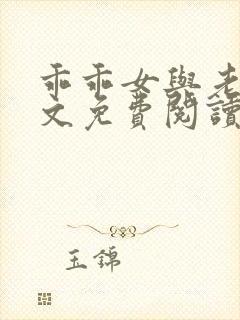 乖乖女與老
文免費閱讀
玉錦